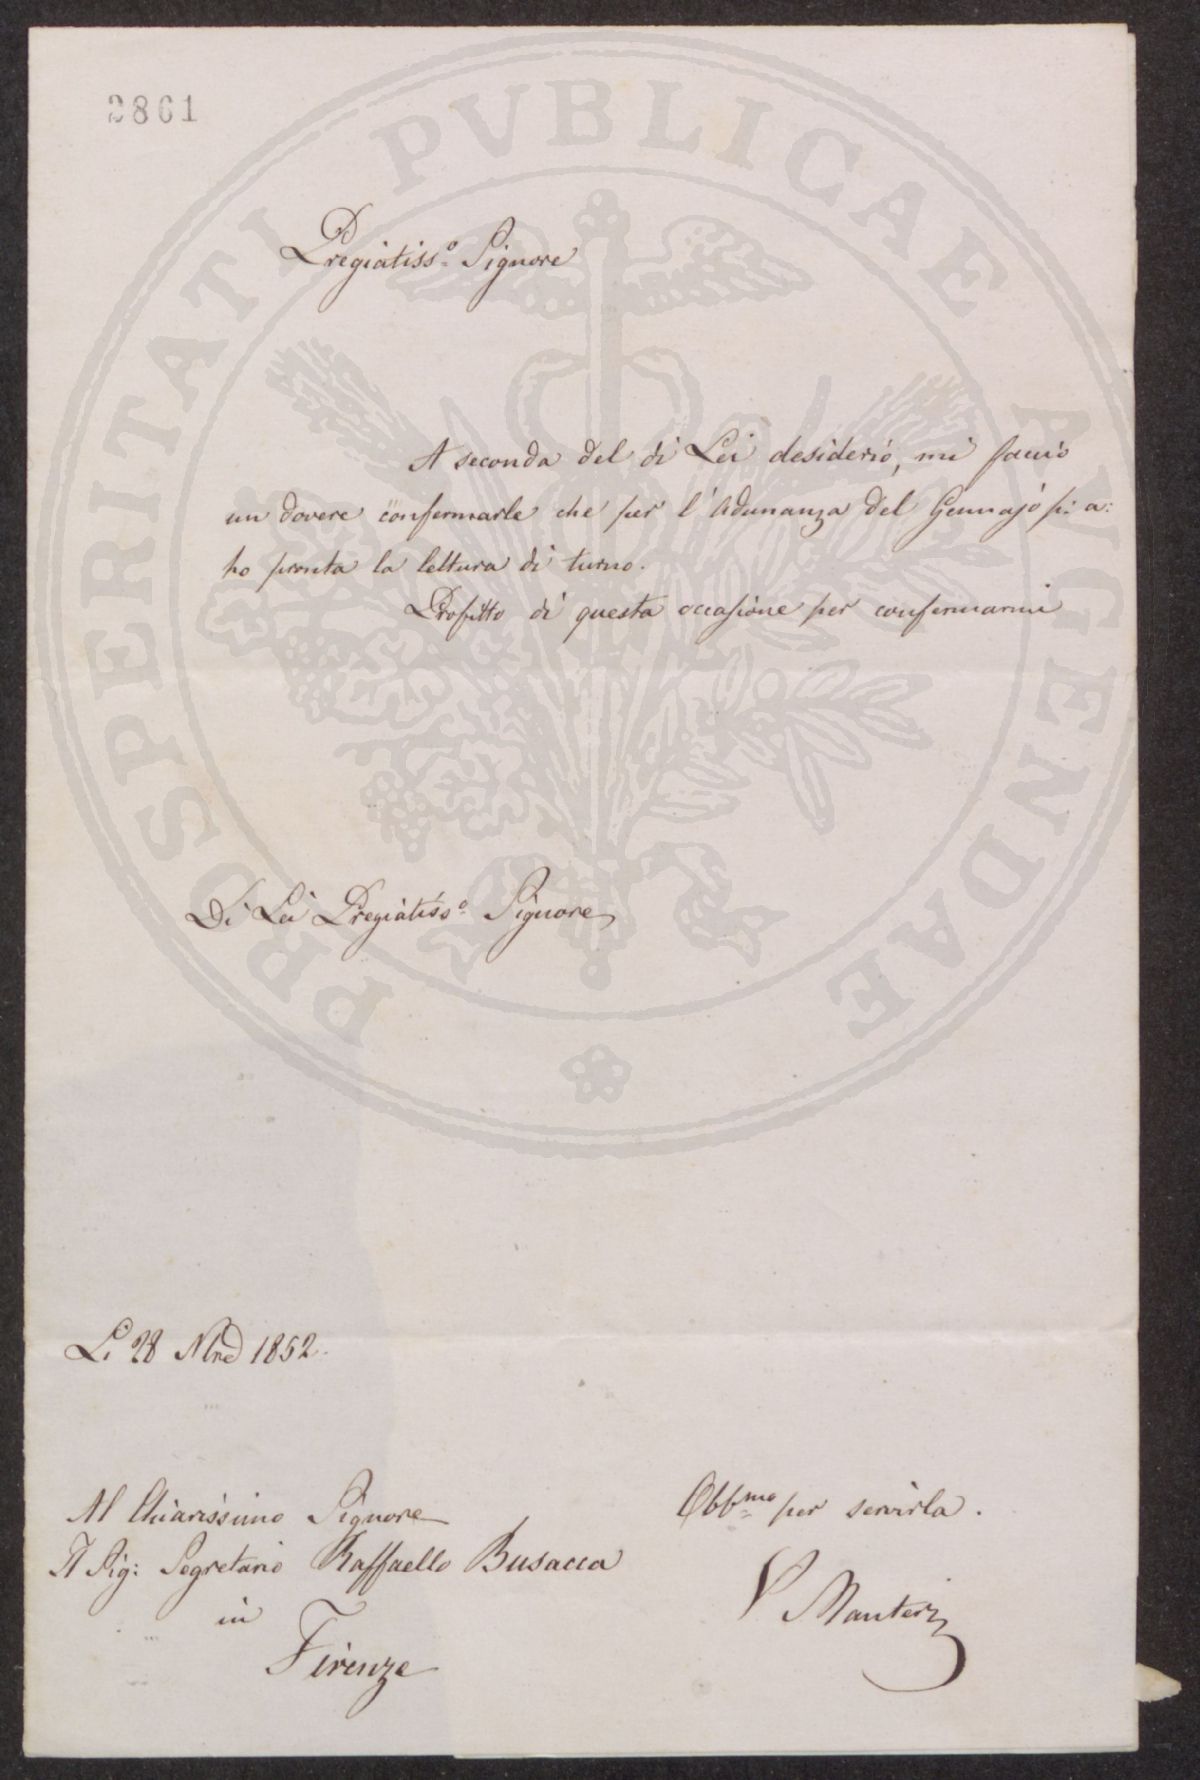 2861
PROSPERITATI PVBLICAE AVGENDAE
Pregiatiss.o Signore
A seconda del di Lei desiderio, mi faccio
un dovere confermarle che per l'Adunanza del Gennajo p: a:
ho pronta la lettura di turno.
Profitto di questa occasione per confermarmi
Di Lei Pregiatiss.o Signore
Li 28 1852.
Al Chiarissimo Signore
Il Sig: Segretario Raffaello Busacca
in
Firenze
Obb.mo per servirla.